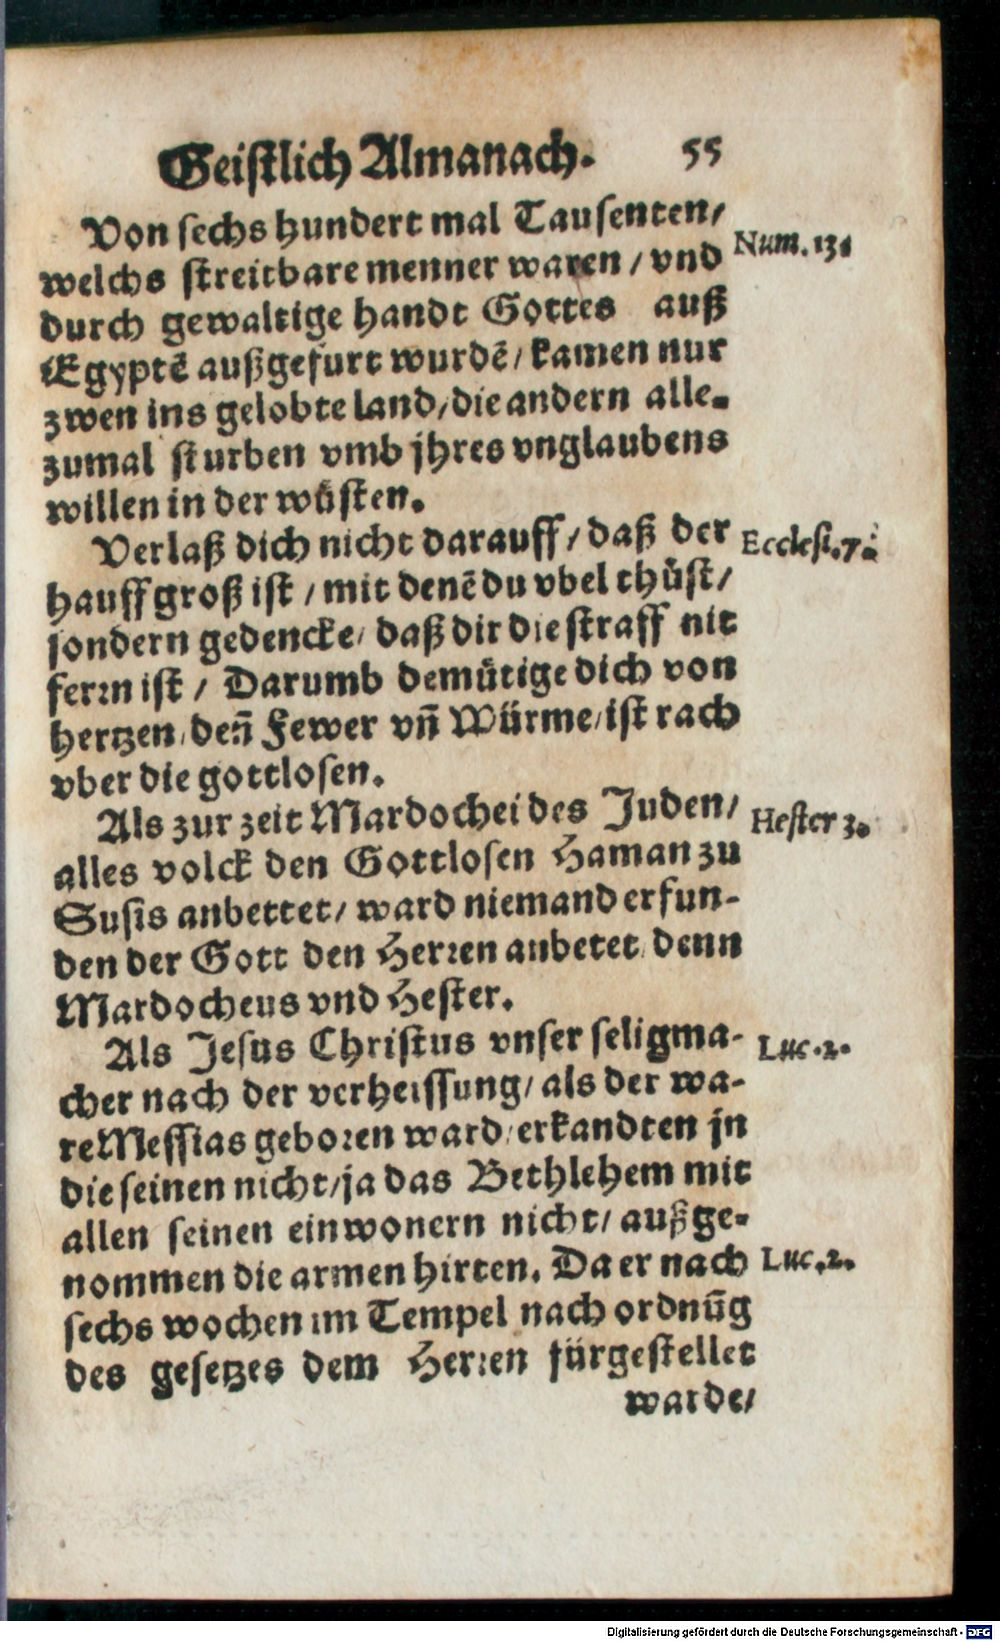 Geistlich Almanach. 55
Von sechs hundert mal Tausenten/
welchs streitbare menner waren / vnd
Num. 13.
durch gewaltige handt Gottes auß
Egyptē außgefurt wurdē / kamen nur
zwen ins gelobte land / die andern alle-
zumal sturben vmb jhres vnglaubens
willen in der wüsten.
Verlaß dich nicht darauff / daß der
Ecclesi. 7.
hauff groß ist / mit denē du vbel thüst /
sondern gedencke / daß dir die straff nit
ferrn ist / Darumb demütige dich von
hertzen / deñ Fewer vñ Würme / ist rach
vber die gottlosen.
Als zur zeit Mardochei des Juden /
Hester 3.
alles volck den Gottlosen Haman zu
Susis anbettet / ward niemand erfun-
den der Gott den Herren anbetet / denn
Mardocheus vnd Hester.
Als Jesus Christus vnser seligma-
Luc. 2.
cher nach der verheissung / als der wa-
re Messias geboren ward / erkandten jn
die seinen nicht / ja das Bethlehem mit
allen seinen einwonern nicht / außge-
nommen die armen hirten. Da er nach
Luc. 2.
sechs wochen im Tempel nach ordnūg
des gesetzes dem Herren fürgestellet
warde /
Digitalisierung gefördert durch die Deutsche Forschungsgemeinschaft - DFG